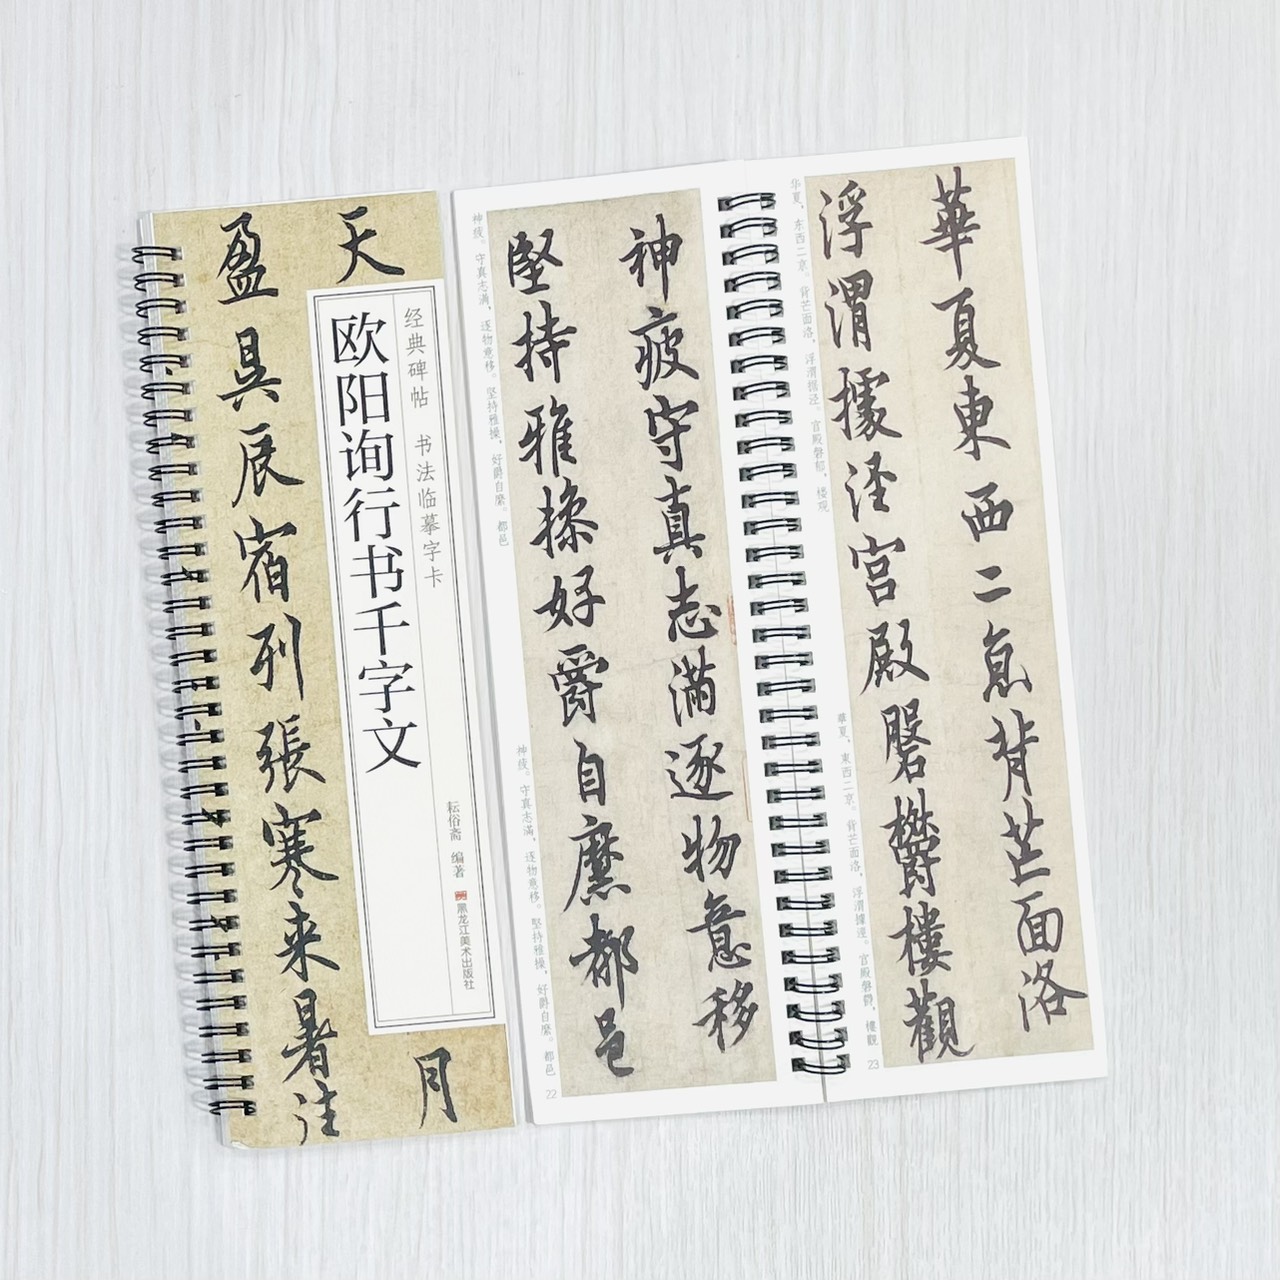 天
月
盈昃辰宿列張寒来暑往
经典碑帖 书法临摹字卡
欧阳询行书千字文
耘俗斋 编著
黑龙江美术出版社
神疲守真志滿逐物意移
堅持雅操好爵自縻都邑
神疲。守真志满，逐物意移。坚持雅操，好爵自縻。都邑
神疲。守真志滿，逐物意移。堅持雅操，好爵自縻。都邑
22
華夏東西二京背芒面洛
浮渭據涇宮殿磐欝樓觀
华夏，东西二京。背芒面洛，浮渭据泾。宫殿磐郁，楼观
華夏，東西二京。背芒面洛，浮渭據涇。宮殿磐欝，樓觀
23